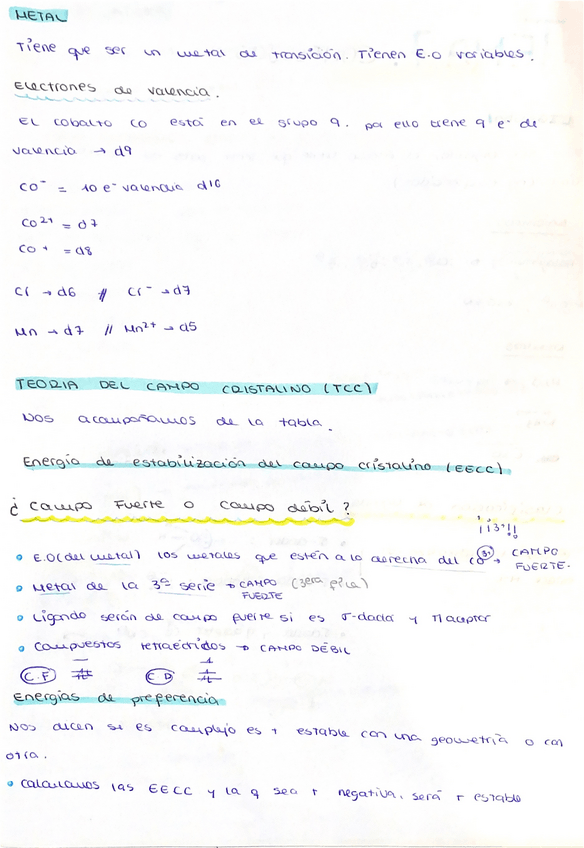 METAL
Tiene que ser un metal de transición. Tienen E.O variables.
Electrones de valencia.
EL cobalto CO está en el grupo 9. por ello tiene 9 e⁻ de
valencia → d9
CO⁻ = 10 e⁻ valencia d10
CO²⁺ = d7
CO⁺ = d8
Cr → d6 // Cr⁻ → d7
Mn → d7 // Mn²⁺ → d5
TEORIA DEL CAMPO CRISTALINO (TCC)
Nos acompañamos de la tabla.
Energía de estabilización del campo cristalino (EECC)
¿ Campo Fuerte o campo débil?
¡¡3⁺!!
• E.O (del metal) los metales que estén a la derecha del CO³⁺ → CAMPO FUERTE.
• Metal de la 3ª serie → CAMPO FUERTE (3era fila)
• Ligando serán de campo fuerte si es σ-dador y π aceptor
• Compuestos tetraédridos → CAMPO DÉBIL
C.F C.D
Energías de preferencia
Nos dicen si es complejo es + estable con una geometría o con
otra.
• Calculamos las EECC y la q sea + negativa, será + estable